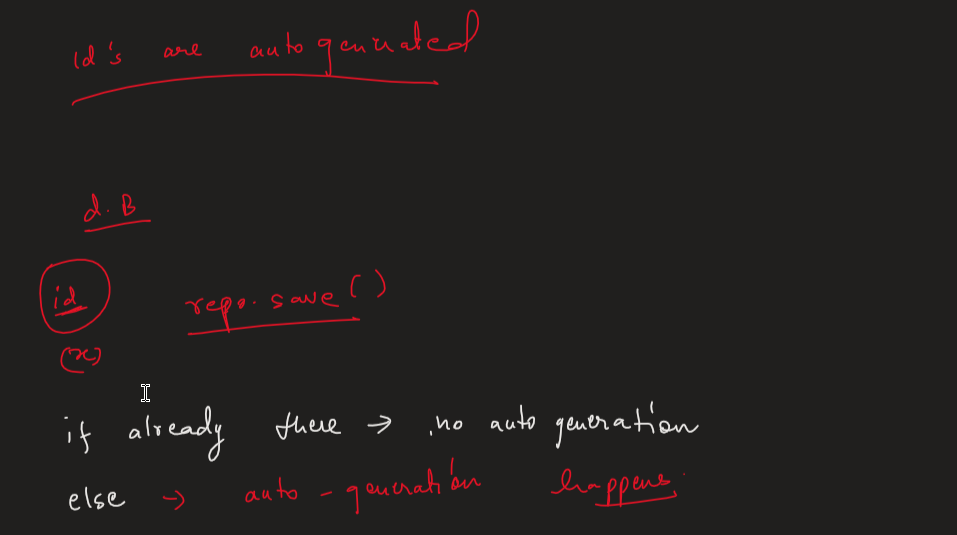 id's are autogenerated
d.B
id repo.save()
(x)
if already there → no auto generation
else → auto-generation happens.